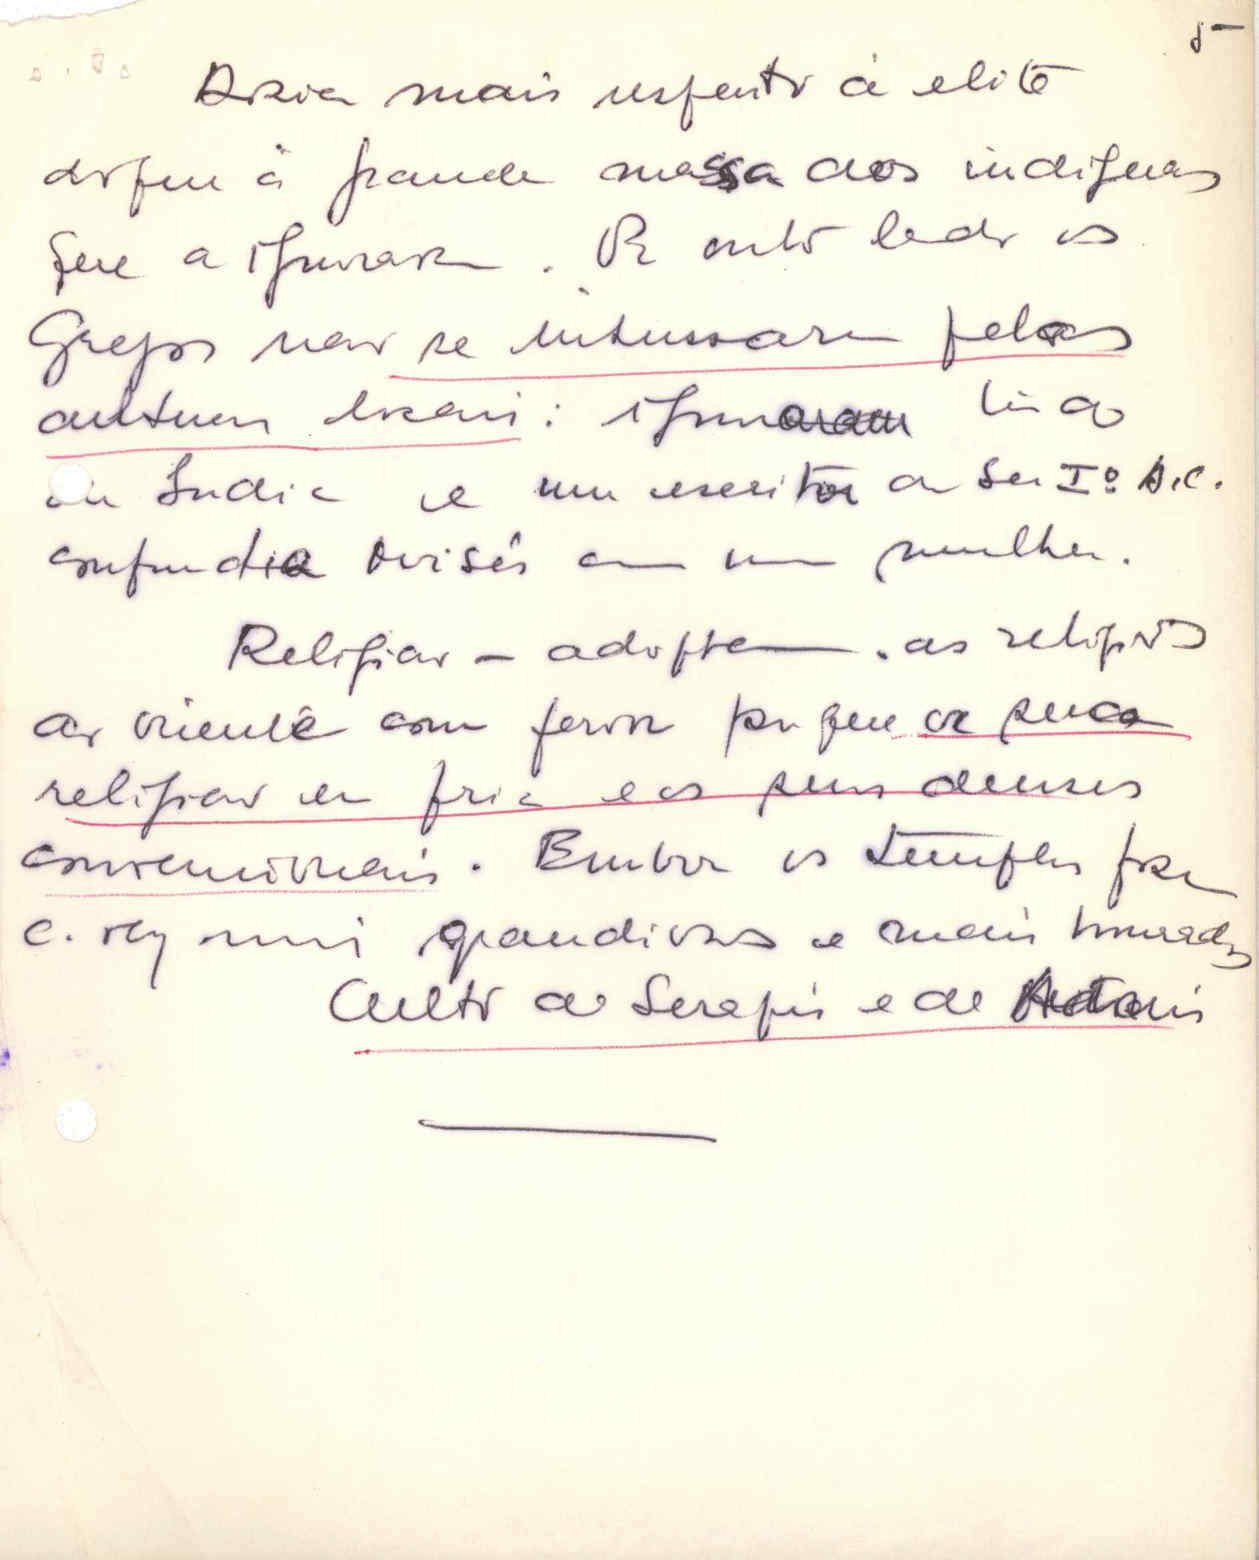 5
Dizia mais respeito à elite
do que à grande massa dos indígenas
que a ignoraram. De outro lado os
Gregos não se interessaram pelas
culturas locais: ignoraram
da India e um escritor do Sec Iº D.C.
confundia Moisés com uma mulher.
Religião – adoptam as religiões
do oriente com fervor porque a sua
religião era fria e os seus deuses
convencionais. Embora os templos
grandiosos e mais honrados
Culto de Serapis e de